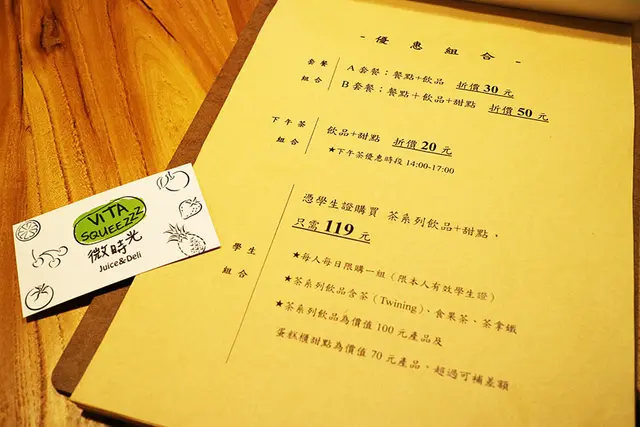 - 優 惠 組 合 -
套 餐
組 合
A 套餐：餐點+飲品 折價 30 元
B 套餐：餐點＋飲品+甜點 折價 50 元
下 午 茶
組 合
飲品+甜點 折價 20 元
★下午茶優惠時段 14:00-17:00
學 生
組 合
憑學生證購買 茶系列飲品+甜點，
只需 119 元
★每人每日限購一組（限本人有效學生證）
★茶系列飲品含茶（Twining）、食果茶、茶拿鐵
★茶系列飲品為價值 100 元產品及
蛋糕櫃甜點為價值 70 元產品，超過可補差額
ViTA
SQUEEZZZ
微時光
Juice&Deli